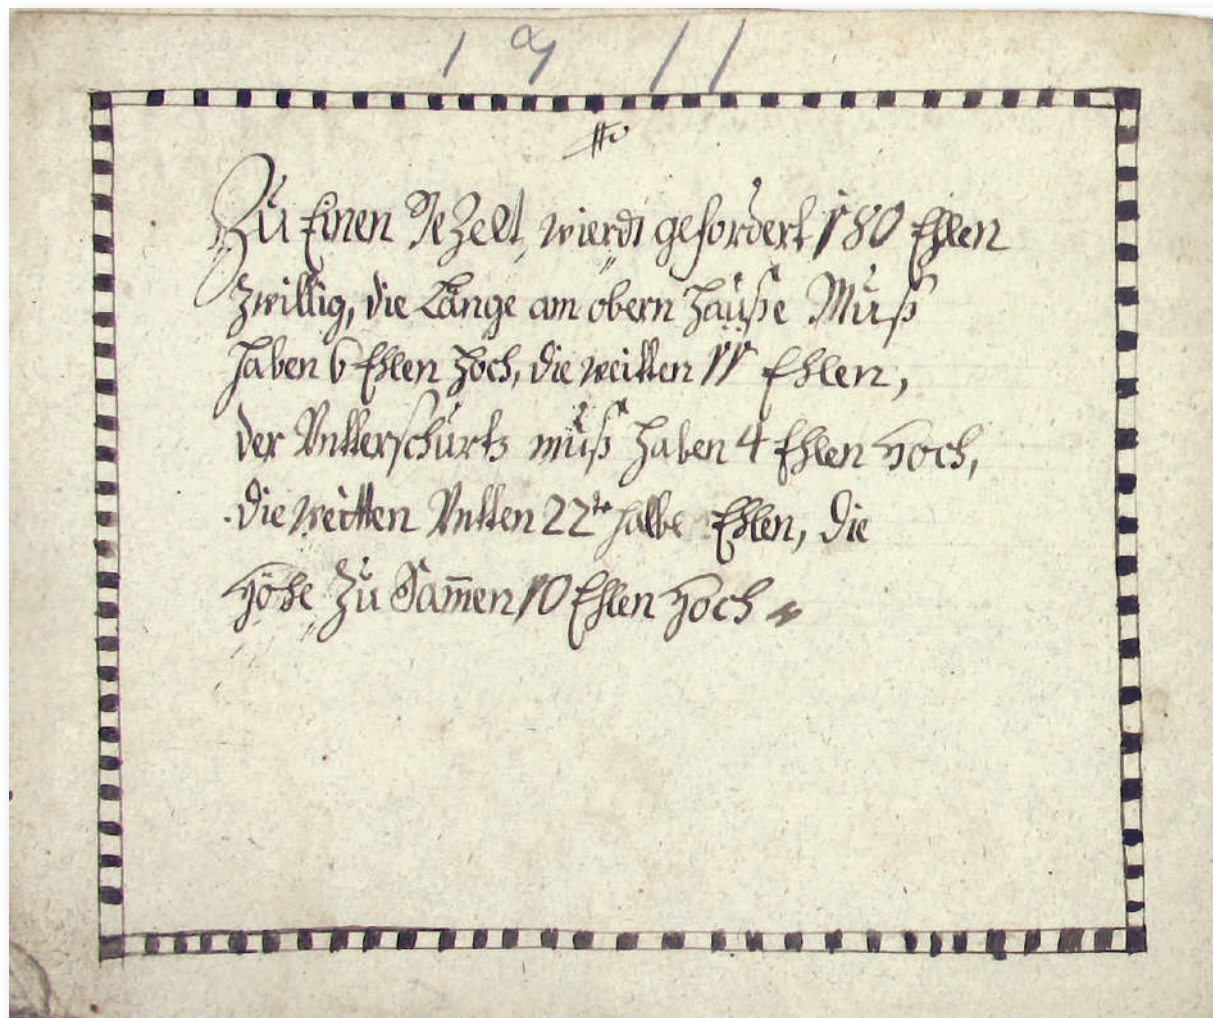 19 11
Zu Einen Gezelt, wierdt gefordert 180 Ehlen
Zwillig, die Länge am obern Hauße Muß
haben 6 Ehlen hoch, die weitten 11 Ehlen,
der Untterschurtz muß haben 4 Ehlen hoch,
die weitten Untten 22te halbe Ehlen, die
Höhe Zu Sam̅en 10 Ehlen hoch